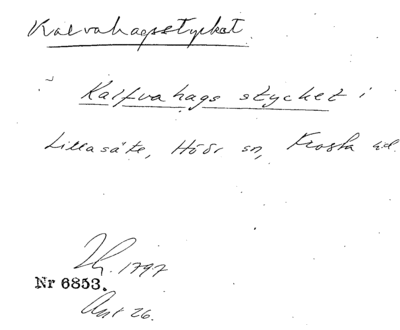 Kalvahagsstycket.
Kalfvahags stycket i
Lillasäte, Höör sn, Frosta hd.
1797
Nr 6853.
Akt 26.